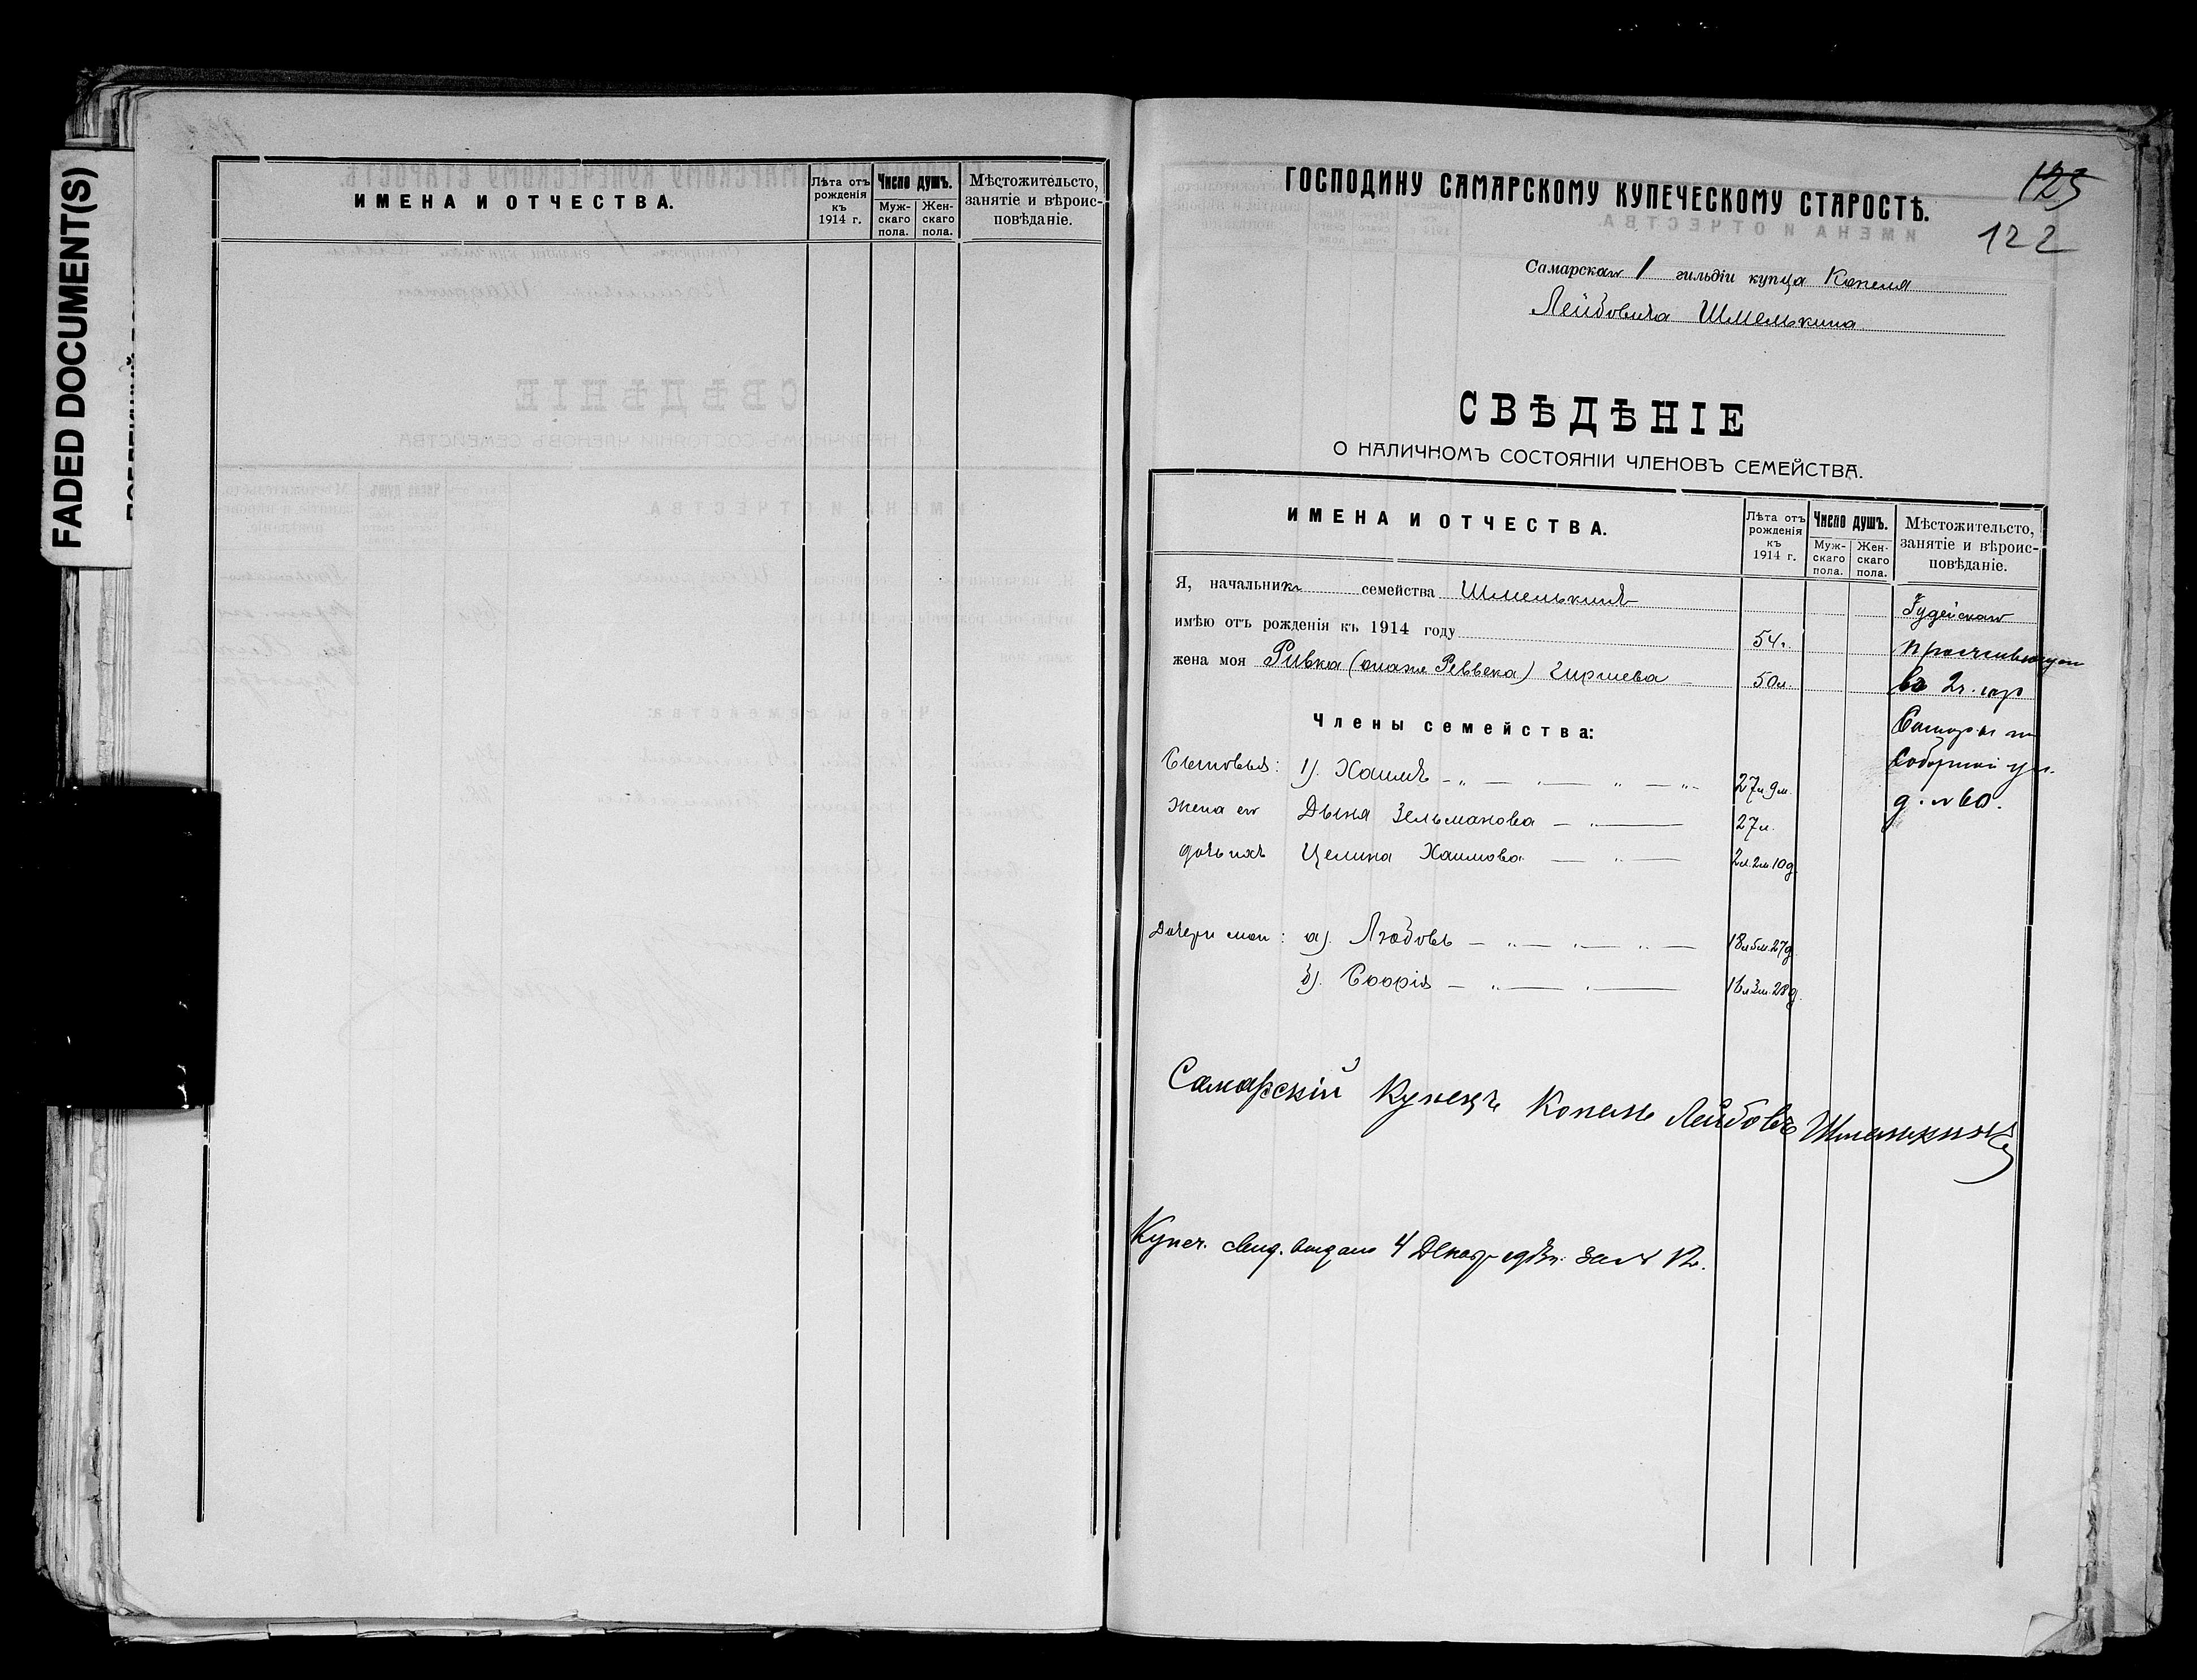 FADED DOCUMENT(S)
ИМЕНА И ОТЧЕСТВА.
Лѣта отъ рожденія къ 1914 г.
Число душъ.
Мужскаго пола.
Женскаго пола.
Мѣстожительсто, занятіе и вѣроисповѣданіе.
125
122
ГОСПОДИНУ САМАРСКОМУ КУПЕЧЕСКОМУ СТАРОСТѢ.
Самарскаго 1 гильдіи купца Копеля
Лейбовича Шмелькина
СВѢДѢНІЕ
О НАЛИЧНОМЪ СОСТОЯНІИ ЧЛЕНОВЪ СЕМЕЙСТВА.
ИМЕНА И ОТЧЕСТВА.
Лѣта отъ рожденія къ 1914 г.
Число душъ.
Мужскаго пола.
Женскаго пола.
Мѣстожительсто, занятіе и вѣроисповѣданіе.
Я, начальникъ семейства Шмелькинъ
имѣю отъ рожденія къ 1914 году 54.
жена моя Ривка (она же Реввека) Гиршева 50 л.
Іудейскаго
проживающ
въ 2 ч. гор
Самары по
Соборной ул.
д. № 60.
Члены семейства:
Сыновья: 1). Хаимъ 27 л. 9 м.
Жена его Дыня Зельманова 27 л.
Дочь ихъ Целина Хаимова 2 л. 2 м. 10 д.
Дочери мои: а). Любовь 18 л. 5 м. 27 д.
б). Софія 16 л. 3 м. 28 д.
Самарскій Купецъ Копель Лейбовъ Шмелькинъ
Купеч. свид. выдано 4 Декаб за № 12.